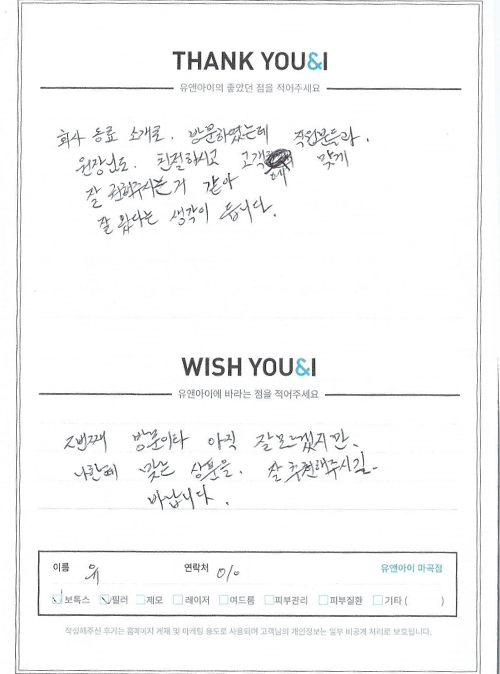 THANK YOU&I
유앤아이의 좋았던 점을 적어주세요
회사 동료 소개로. 방문하였는데 직원분들과.
원장님도. 친절하시고 고객에게 맞게
잘 권해주시는거 같아
잘 왔다는 생각이 듭니다.
WISH YOU&I
유앤아이에 바라는 점을 적어주세요
2번째 방문이라 아직 잘모르겠지만.
나한테 맞는 상품을. 잘 추천해주시길.
바랍니다.
이름 유 연락처 010 유앤아이 마곡점
보톡스 필러 제모 레이저 여드름 피부관리 피부질환 기타 ( )
작성해주신 후기는 홈페이지 게재 및 마케팅 용도로 사용되며 고객님의 개인정보는 일부 비공개 처리로 보호됩니다.